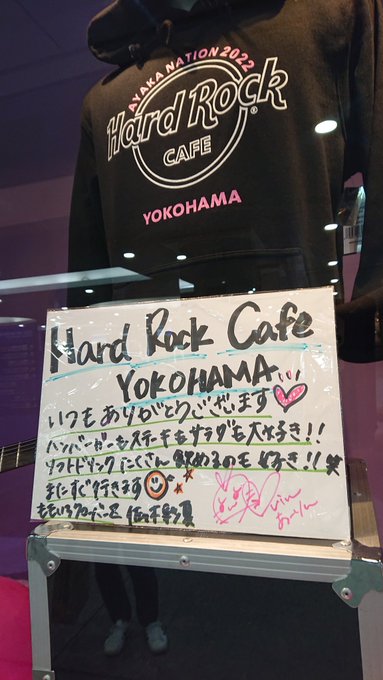 AYAKA NATION 2022
Hard Rock
®
CAFE
YOKOHAMA
Hard Rock Cafe
YOKOHAMA
いつもありがとうございます
ハンバーガーもステーキもサラダも大好き!!
ソフトドリンクたくさん飲めるのも好き!!笑
またすぐ行きます
ももいろクローバーZ 佐々木彩夏